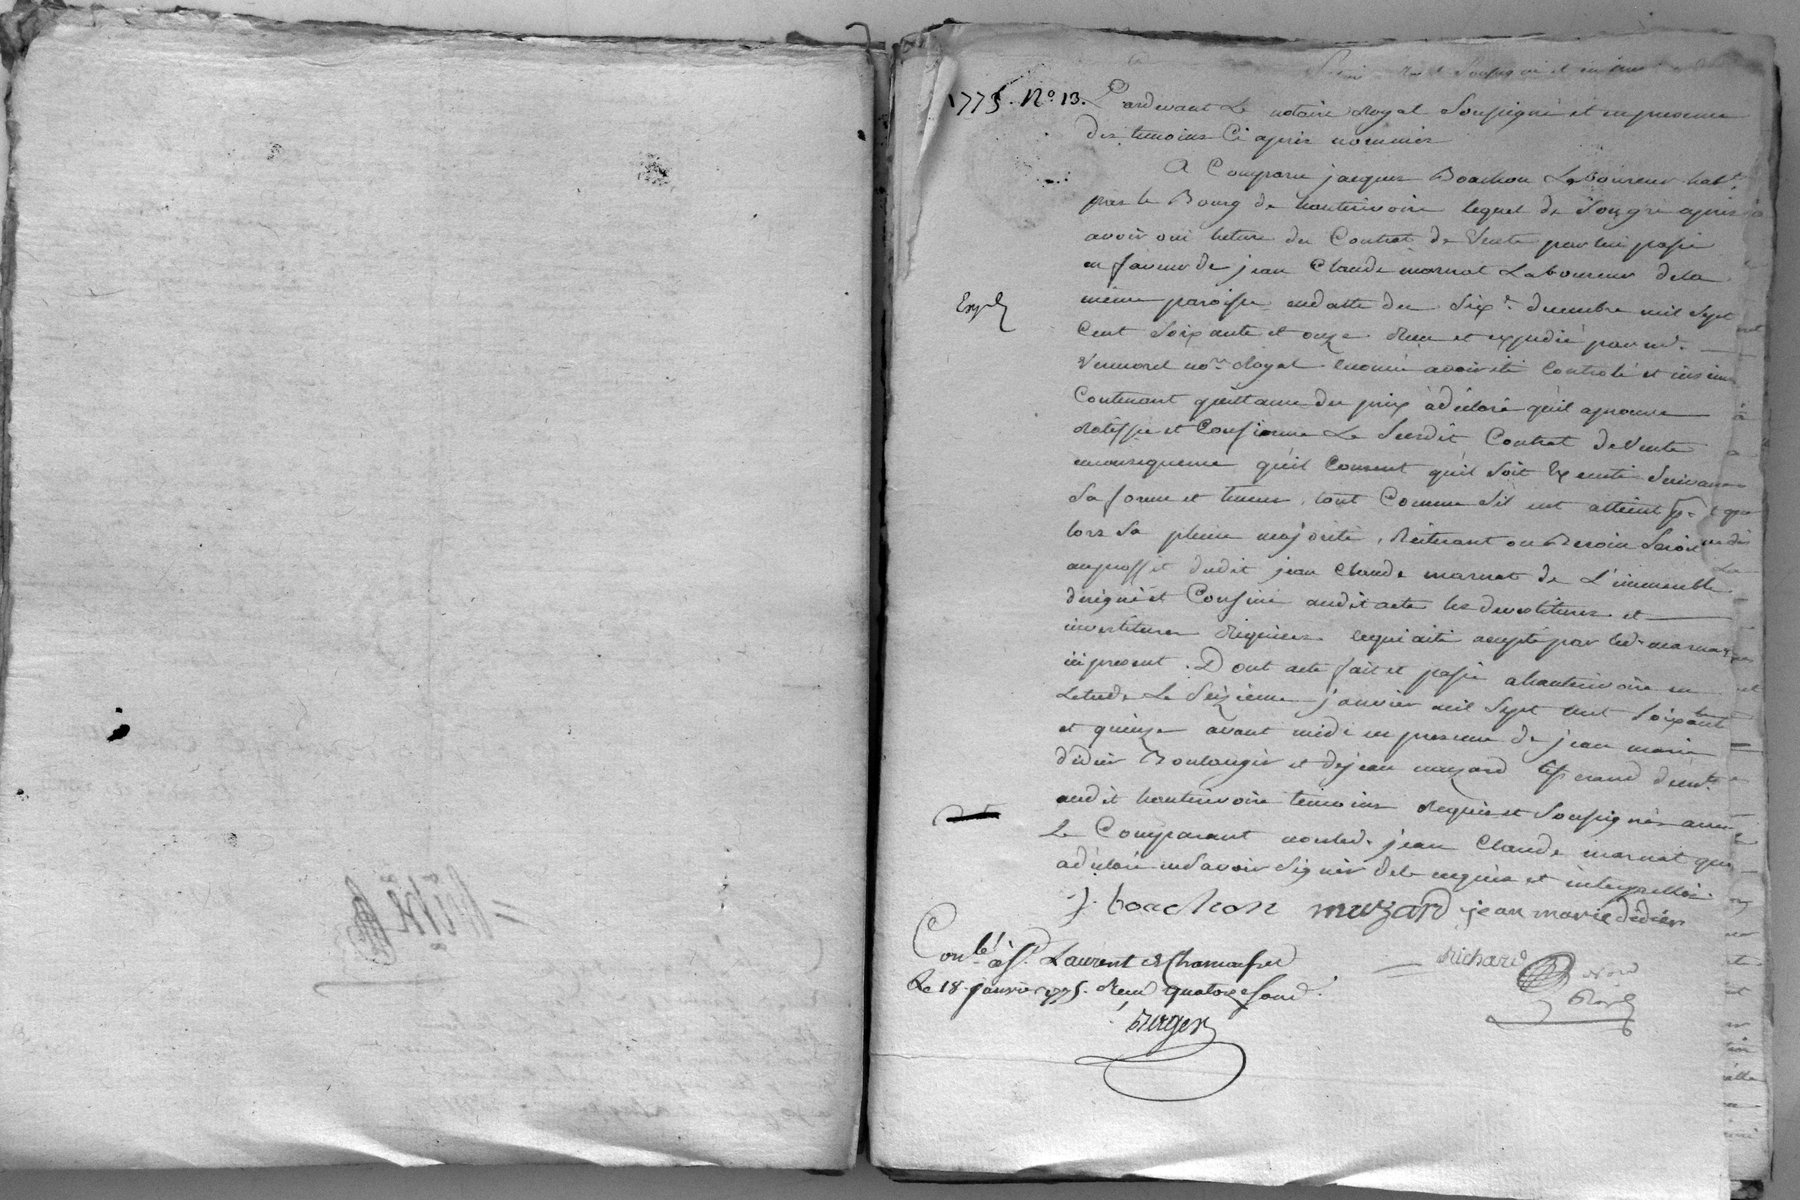 1775. No 13.
Pardevant Le notaire Royal Soussigné et en presence
des temoins Ci apres nommés
A Comparu jacques Boachon Laboureur habt.
par le Bourg de hauterivoire lequel de Son gré apres
avoir oui lecture du Contrat de Vente par lui passé
en faveur de jean Claude marnat Laboureur de la
Exp.
même paroisse endatte du Six decembre mil Sept
Cent Soixante et onze Recu et expedié par me.
Vermorel nore. Royal enoncé avoir été Controlé et insinué
Contenant quittance du prix à déclaré qu'il aprouve
Ratiffie et Confirme Le Susdit Contrat de Vente
qu'il Consent qu'il Soit Executé Suivant
Sa forme et teneur, tout Comme Sil eut atteint
lors Sa pleine majorité, Réiterant ou Besoin Seroit
au proffit dudit jean Claude marnat de L'immeuble
designé et Confiné audit acte les devestitures et
investitures Requises ce qui a été accepté par led. marnat
ici present. Dont acte fait et passé a hauterivoire en
Letude Le Seizieme janvier mil Sept Cent Soixante
et quinze avant midi en presence de jean marie
dédier Boulanger et de jean muzard
audit hauterivoire temoins Requis et Soussignés avec
Le Comparant non led. jean Claude marnat qui
a déclaré ne Savoir Signer de ce enquis et interpellé.
J. boachon muzard jean marie dedier
Richard Nore
Royal
Conlé. à St. Laurent de Chamousset
Le 18 janvier 1775. Recu quatorze Sous.
Berger